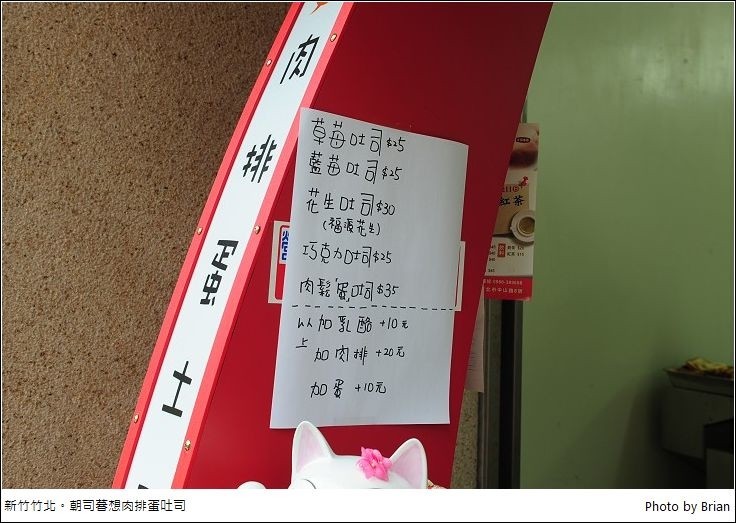 肉
排
蛋
土
草莓吐司$25
藍莓吐司$25
花生吐司$30
(福源花生)
巧克力吐司$25
肉鬆蛋吐司$35
以上
加乳酪 +10元
加肉排 +20元
加蛋 +10元
紅茶
新竹竹北。朝司暮想肉排蛋吐司
Photo by Brian